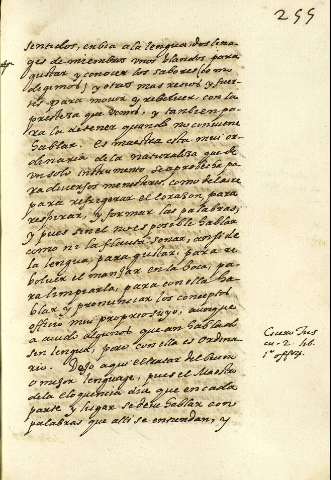 255
sentidos, enbia a la lengua dos lina
ges de miembros unos blandos para
gustar y conocer los sabores (como
degimos) y otros mas recios y fuer
tes para mover y rebolver, con la
presteza que vemos, y tanbien pa
ra la detener quando no conviene
hablar. Es maestra esta muy or
dinaria de la naturaleza que de
un solo instrumento se aprobecha pa
ra diversos menesteres, como del aire
para refrigerar el corazon, para
respirar, y formar las palabras,
y pues sin el no es posible hablar
como ni la flauta sonar, assi de
la lengua, para gustar, para re
bolver el manjar en la boca, pa
ra limpiarla, para con ella ha
blar y pronunciar los conceptos
officio muy propio suyo, aunque
a avido algunos que an hablado
sin lengua, pero con ella es ordina
rio. Dejo aqui el tratar del buen
o mejor lenguaje, pues el Maestro
de la eloquencia dia que en cada
parte y lugar se debe hablar con
palabras que alli se entiendan, y
Cicero Tus
cu. 2. lib.
1º offi.